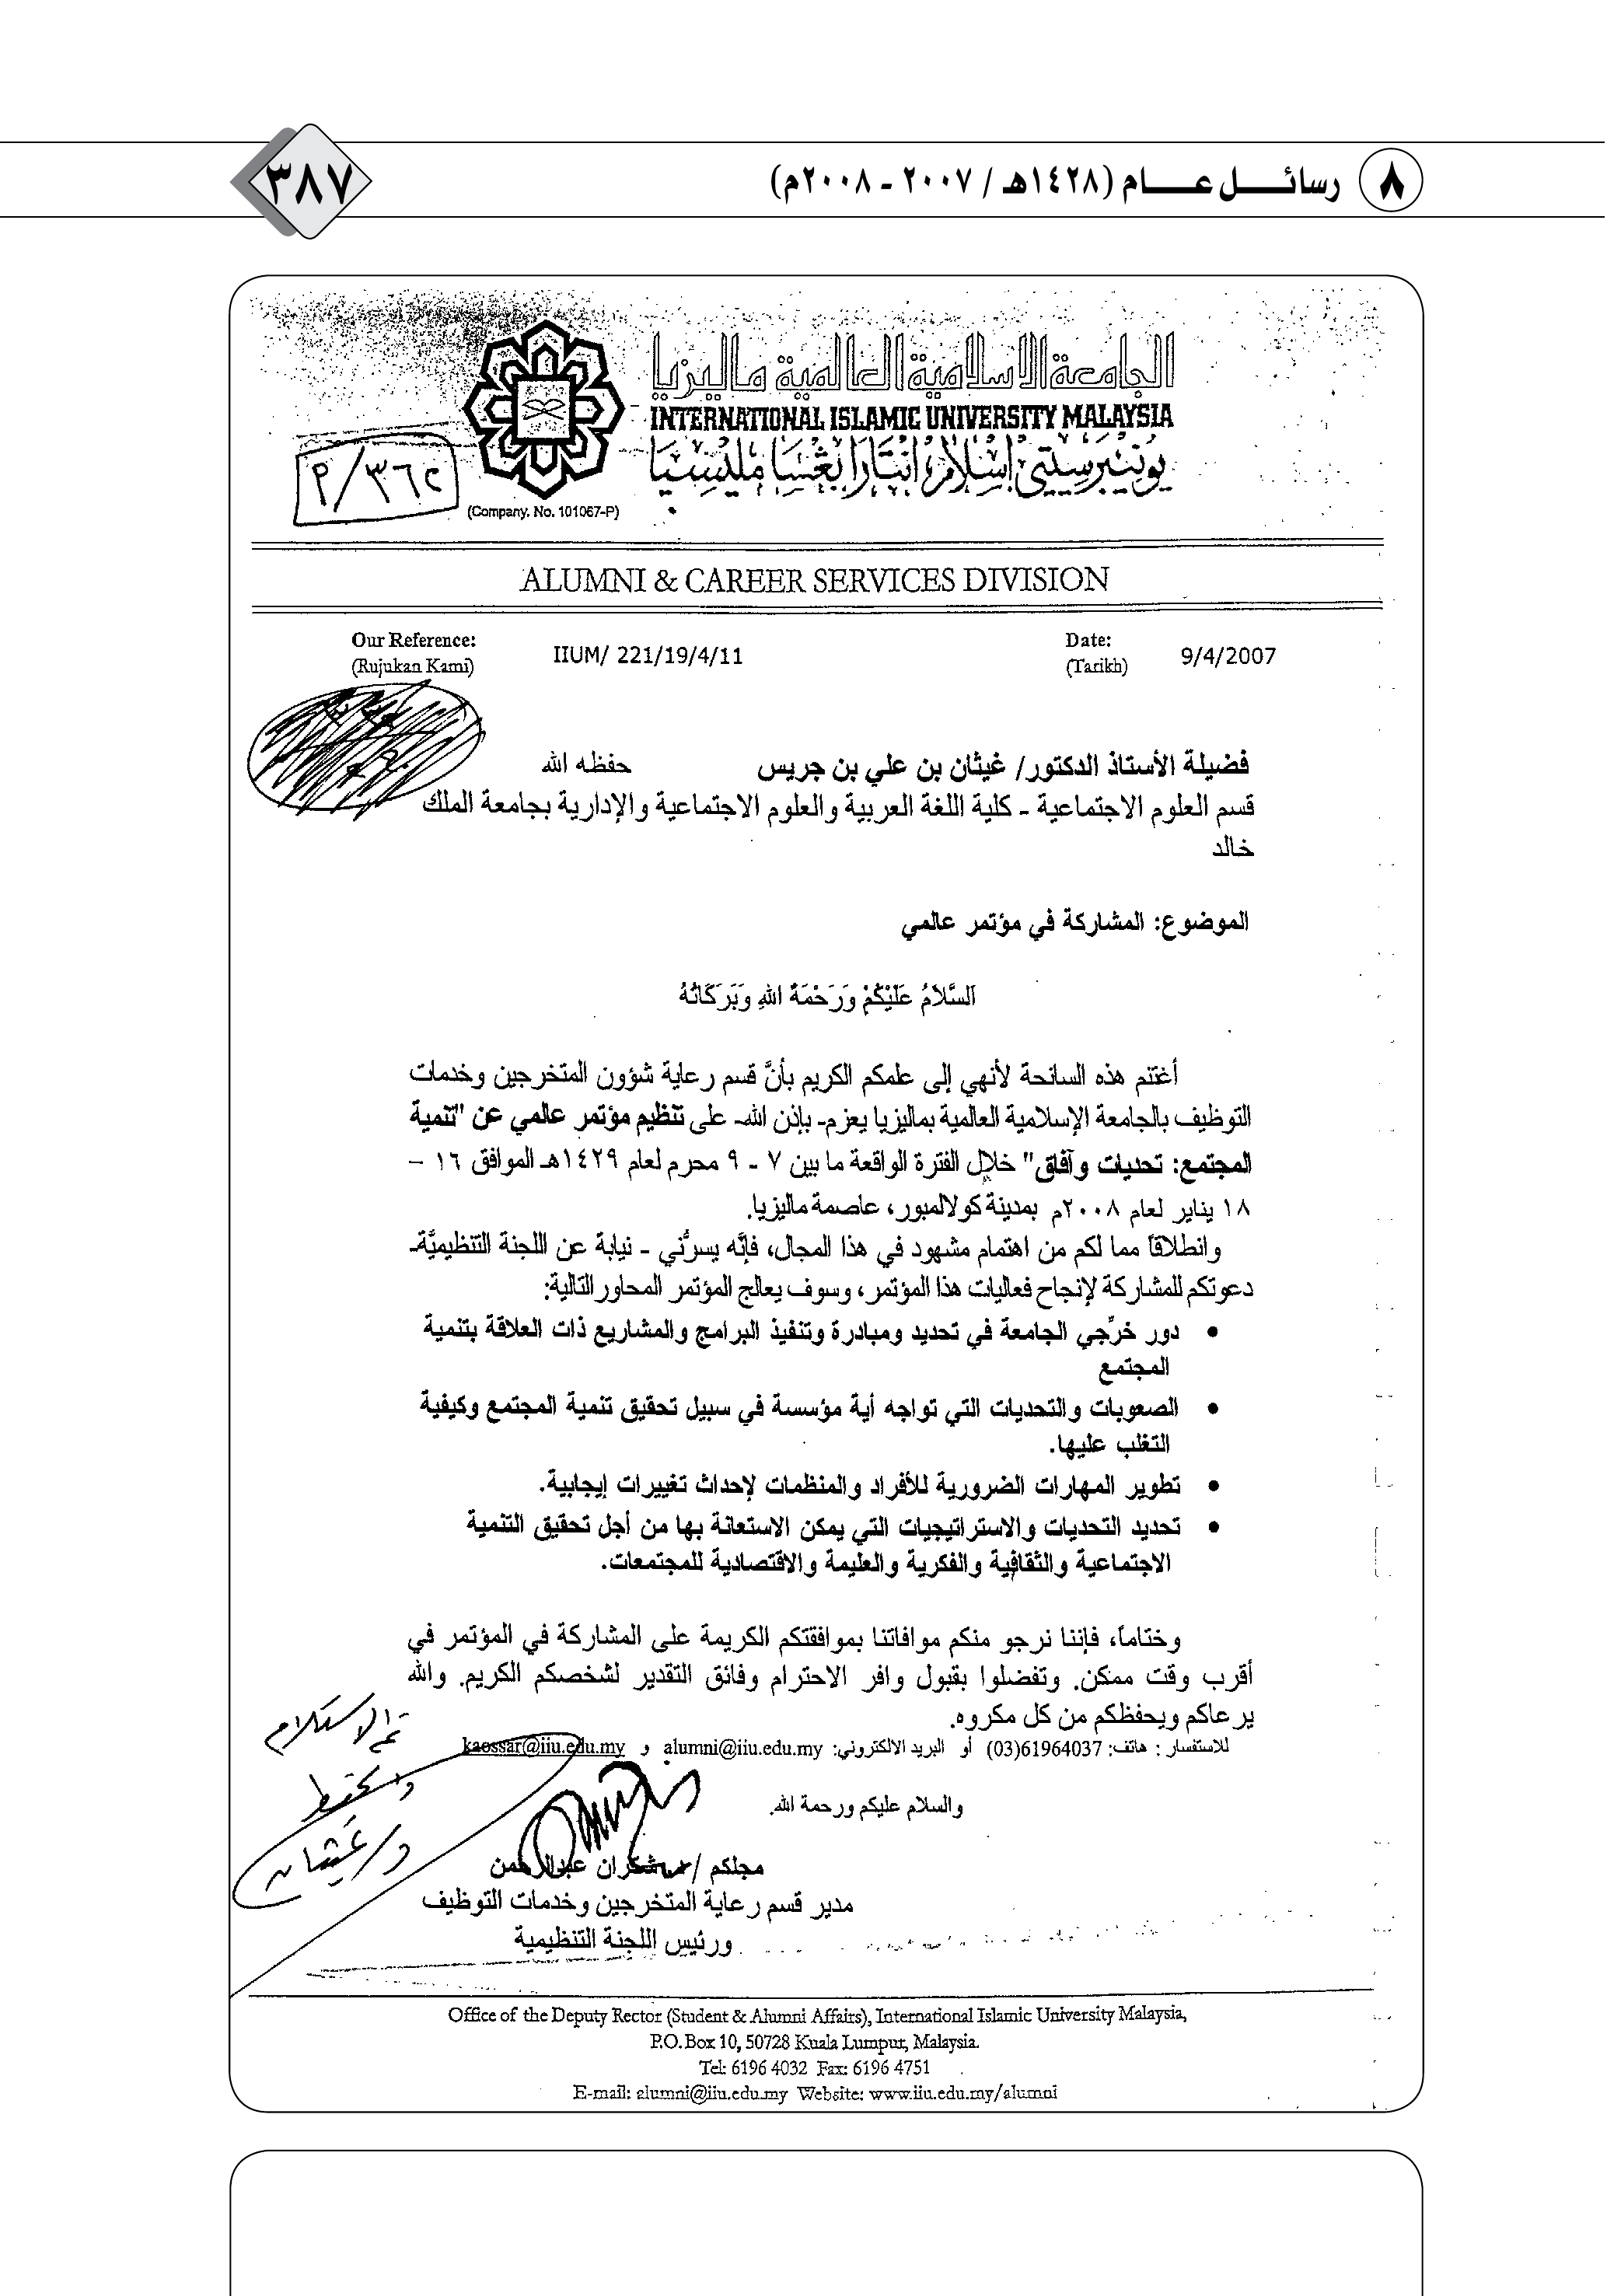 ٨ رسائل عام (١٤٢٨هـ / ٢٠٠٧ - ٢٠٠٨م)
٣٨٧
الجامعة الإسلامية العالمية ماليزيا
INTERNATIONAL ISLAMIC UNIVERSITY MALAYSIA
يونيۏرسيتي اسلام انتارابڠسا مليسيا
(Company. No. 101067-P)
م/٣٦٢
ALUMNI & CAREER SERVICES DIVISION
Our Reference: IIUM/ 221/19/4/11 Date: 9/4/2007
(Rujukan Kami) (Tarikh)
فضيلة الأستاذ الدكتور/ غيثان بن علي بن جريس حفظه الله
قسم العلوم الاجتماعية - كلية اللغة العربية والعلوم الاجتماعية والإدارية بجامعة الملك
خالد
الموضوع: المشاركة في مؤتمر عالمي
اَلسَّلاَمُ عَلَيْكُمْ وَرَحْمَةُ اللهِ وَبَرَكَاتُهُ
أغتنم هذه السانحة لأنهي إلى علمكم الكريم بأنَّ قسم رعاية شؤون المتخرجين وخدمات
التوظيف بالجامعة الإسلامية العالمية بماليزيا يعزم- بإذن الله- على تنظيم مؤتمر عالمي عن "تنمية
المجتمع: تحديات وآفاق" خلال الفترة الواقعة ما بين ٧ - ٩ محرم لعام ١٤٢٩هـ الموافق ١٦ –
١٨ يناير لعام ٢٠٠٨م بمدينة كولالمبور، عاصمة ماليزيا.
وانطلاقاً مما لكم من اهتمام مشهود في هذا المجال، فإنَّه يسرُّني - نيابة عن اللجنة التنظيميَّة-
دعوتكم للمشاركة لإنجاح فعاليات هذا المؤتمر، وسوف يعالج المؤتمر المحاور التالية:
• دور خرِّجي الجامعة في تحديد ومبادرة وتنفيذ البرامج والمشاريع ذات العلاقة بتنمية
المجتمع
• الصعوبات والتحديات التي تواجه أية مؤسسة في سبيل تحقيق تنمية المجتمع وكيفية
التغلب عليها.
• تطوير المهارات الضرورية للأفراد والمنظمات لإحداث تغييرات إيجابية.
• تحديد التحديات والاستراتيجيات التي يمكن الاستعانة بها من أجل تحقيق التنمية
الاجتماعية والثقافية والفكرية والعليمة والاقتصادية للمجتمعات.
وختاماً، فإننا نرجو منكم موافاتنا بموافقتكم الكريمة على المشاركة في المؤتمر في
أقرب وقت ممكن. وتفضلوا بقبول وافر الاحترام وفائق التقدير لشخصكم الكريم. والله
يرعاكم ويحفظكم من كل مكروه.
للاستفسار : هاتف: 61964037(03) أو البريد الالكتروني: alumni@iiu.edu.my و kaossar@iiu.edu.my
تم الاستلام
والسلام عليكم ورحمة الله.
د/ غيثان
شكران عبدالرحمن
مدير قسم رعاية المتخرجين وخدمات التوظيف
ورئيس اللجنة التنظيمية
Office of the Deputy Rector (Student & Alumni Affairs), International Islamic University Malaysia,
P.O. Box 10, 50728 Kuala Lumpur, Malaysia.
Tel: 6196 4032 Fax: 6196 4751
E-mail: alumni@iiu.edu.my Website: www.iiu.edu.my/alumni